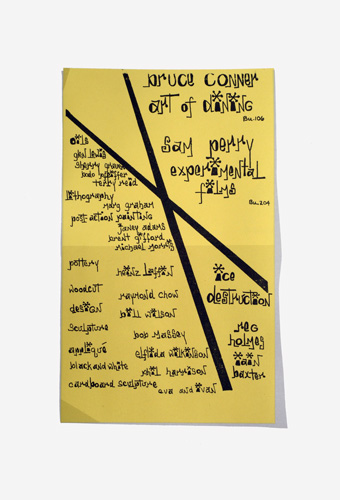 bruce conner
art of dining
Bu.106
sam perry
experimental
films
Bu.204
oils
glen lewis
sherry graham
bodo pfeiffer
terry reid
lithography
mary graham
post-action painting
janey adams
brent gifford
michael morris
pottery
heinz laffin
woodcut
raymond chow
design
bill wilson
sculpture
bob massey
appliqué
elfrida wilkinson
black and white
phil harrison
cardboard sculpture
eva and ivan
ice
destruction
reg
holmes
iain
baxter